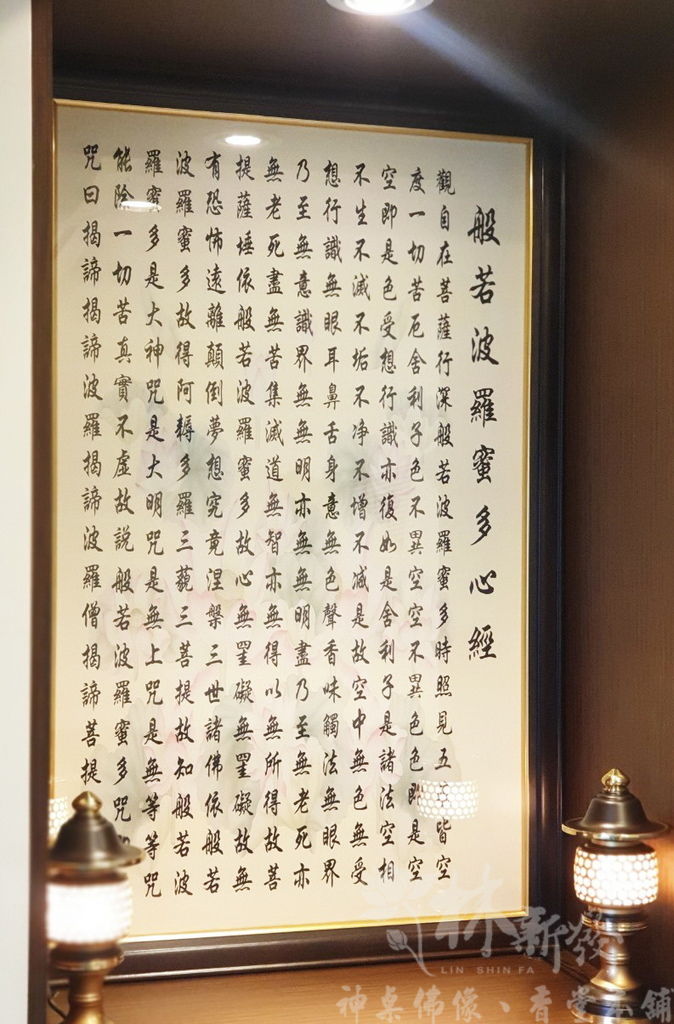 般若波羅蜜多心經
觀自在菩薩行深般若波羅蜜多時照見五皆空
度一切苦厄舍利子色不異空空不異色色即是空
空即是色受想行識亦復如是舍利子是諸法空相
不生不滅不垢不净不增不减是故空中無色無受
想行識無眼耳鼻舌身意無色聲香味觸法無眼界
乃至無意識界無無明亦無無明盡乃至無老死亦
無老死盡無苦集滅道無智亦無得以無所得故菩
提薩埵依般若波羅蜜多故心無罣礙無罣礙故無
有恐怖遠離顛倒夢想究竟涅槃三世諸佛依般若
波羅蜜多故得阿耨多羅三藐三菩提故知般若波
羅蜜多是大神咒是大明咒是無上咒是無等等咒
能除一切苦真實不虛故說般若波羅蜜多咒
咒曰揭諦揭諦波羅揭諦波羅僧揭諦菩提
林新發
LIN SHIN FA
神桌佛像、香堂本舖